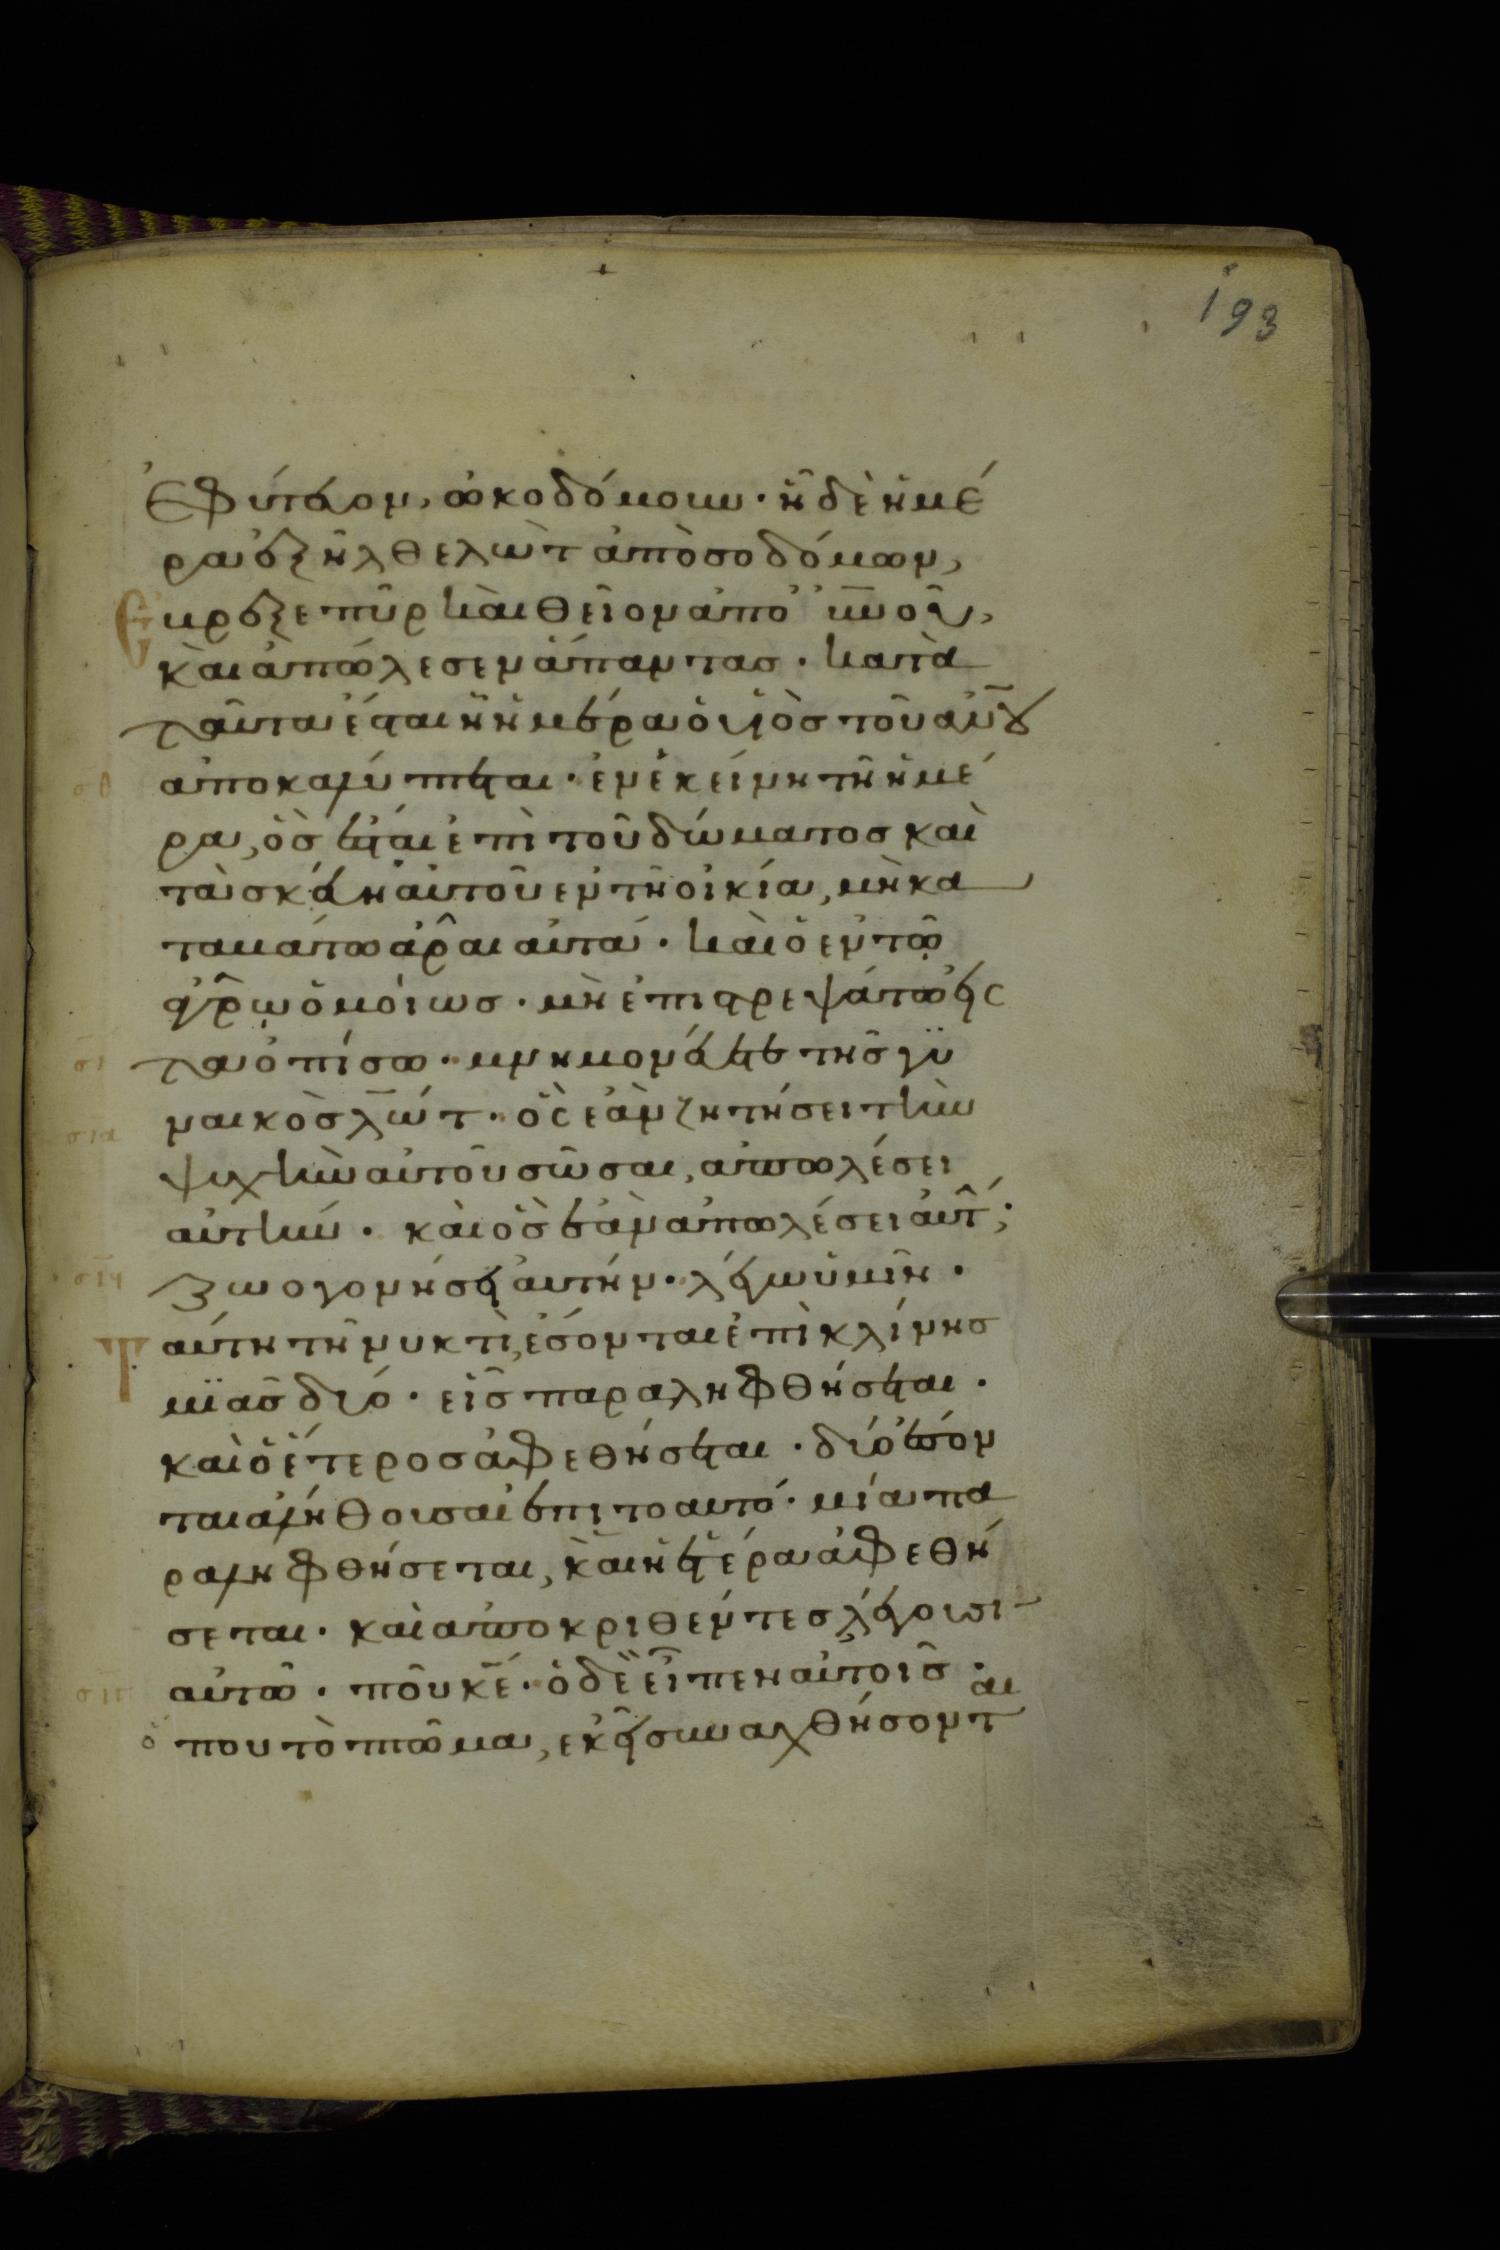 193
ἐφύτευον, ὠκοδόμουν· ἧ δὲ ἡμέ
ρα ἐξῆλθε λὼτ ἀπὸ σοδόμων,
ἔβρεξε πῦρ καὶ θεῖον ἀπὸ οὐνοῦ,
καὶ ἀπώλεσεν ἅπαντας· κατὰ
ταῦτα ἔσται ἧ ἡμέρα ὁ υἱὸς τοῦ ἀνοῦ
ἀποκαλύπτεται· ἐν ἐκείνη τῆ ἡμέ
σθ
ρα, ὃς ἔσται ἐπὶ τοῦ δώματος καὶ
τὰ σκεύη αὐτοῦ ἐν τῆ οἰκία, μὴ κα
ταβάτω ἆραι αὐτά· καὶ ὁ ἐν τῶ
ἀγρῶ ὁμοίως· μὴ ἐπιστρεψάτω εἰς
τὰ ὀπίσω· μνημονεύετε τῆς γυ
σι
ναικὸς λώτ· ὃς ἐὰν ζητήσει τὴν
σια
ψυχὴν αὐτοῦ σῶσαι, ἀπωλέσει
αὐτήν· καὶ ὃς ἐὰν ἀπωλέσει αὐτ,
ζωογονήσει αὐτήν· λέγω ὑμῖν·
σιβ
Ταύτη τῆ νυκτὶ, ἔσονται ἐπὶ κλίνης
μιᾶς δύο· εἷς παραληφθήσεται·
καὶ ὁ ἕτερος ἀφεθήσεται· δύο ἔσον
ται ἀλήθουσαι ἐπιτοαυτό· μία πα
ραληφθήσεται, καὶ ἡ ἑτέρα ἀφεθή
σεται· καὶ ἀποκριθέντες λέγουσι
αὐτῶ· ποῦ κέ· ὁ δὲ εἶπεν αὐτοῖς·
σιγ
ὅπου τὸ πτῶμα, ἐκεῖ συναχθήσονται